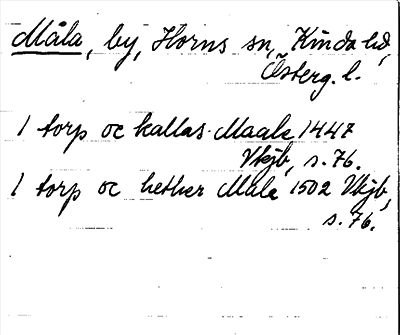 Måla, by, Horns sn, Kinda hd,
Österg. l.
1 torp oc kallas Maala 1447
Vkjb, s. 76.
1 torp oc hether Måla 1502 Vkjb,
s. 76.